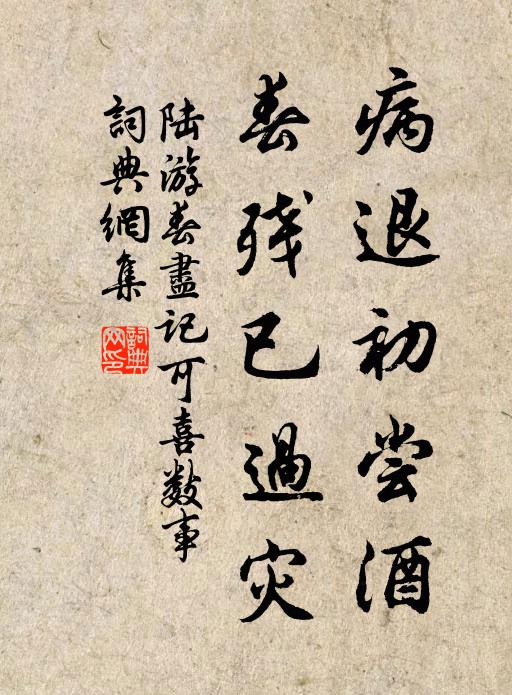 病退初尝酒
春残已過灾
陆游春盡记可喜数事
詞典網集
詞典网印